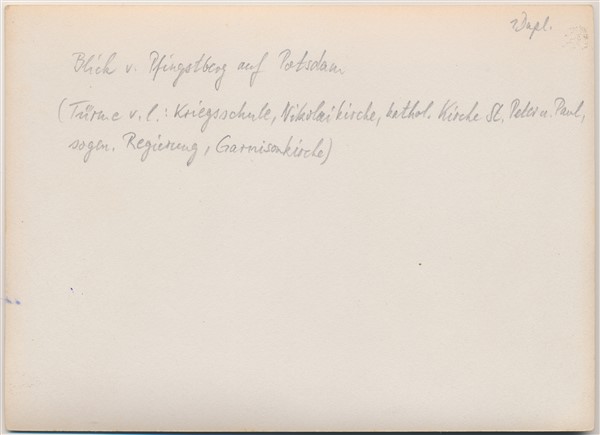 Dupl.
Blick v. Pfingstberg auf Potsdam
(Türme v. l.: Kriegsschule, Nikolaikirche, kathol. Kirche St. Peter u. Paul,
sogen. Regierung, Garnisonkirche)